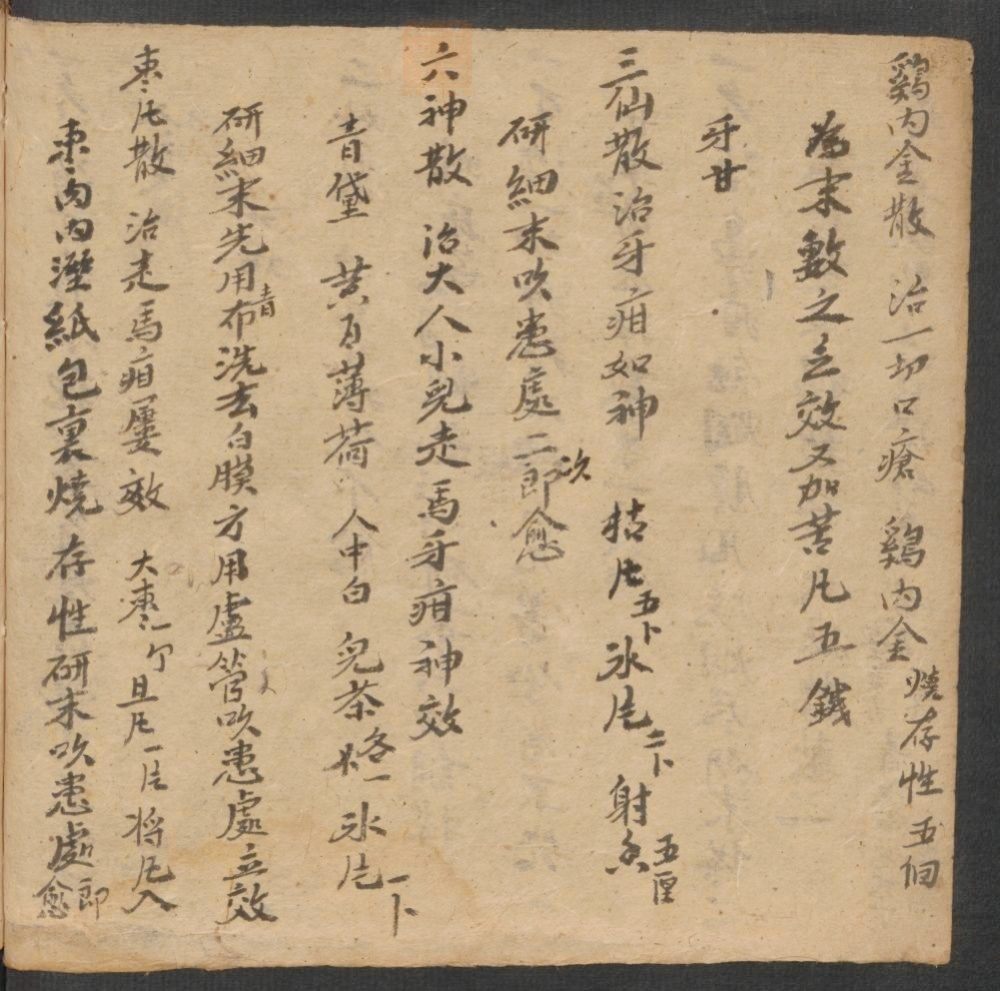 鷄内金散 治一切口瘡 鷄内金 燒存性五個
為末敷之立效又加苦凡五錢
牙甘
三仙散治牙疳如神 枯凡五卜氷片二卜射香五厘
研細末吹患處二次即愈
六神散 治大人小兒走馬牙疳神效
青黛 黄百薄荷 人中白 兒茶各一 氷片一卜
研細末先用青布洗去白膜方用盧管吹患處立效
棗凡散 治走馬疳屢效 大棗一个 旦凡一片將凡入
棗肉内溼紙包裏燒存性研末吹患處即愈